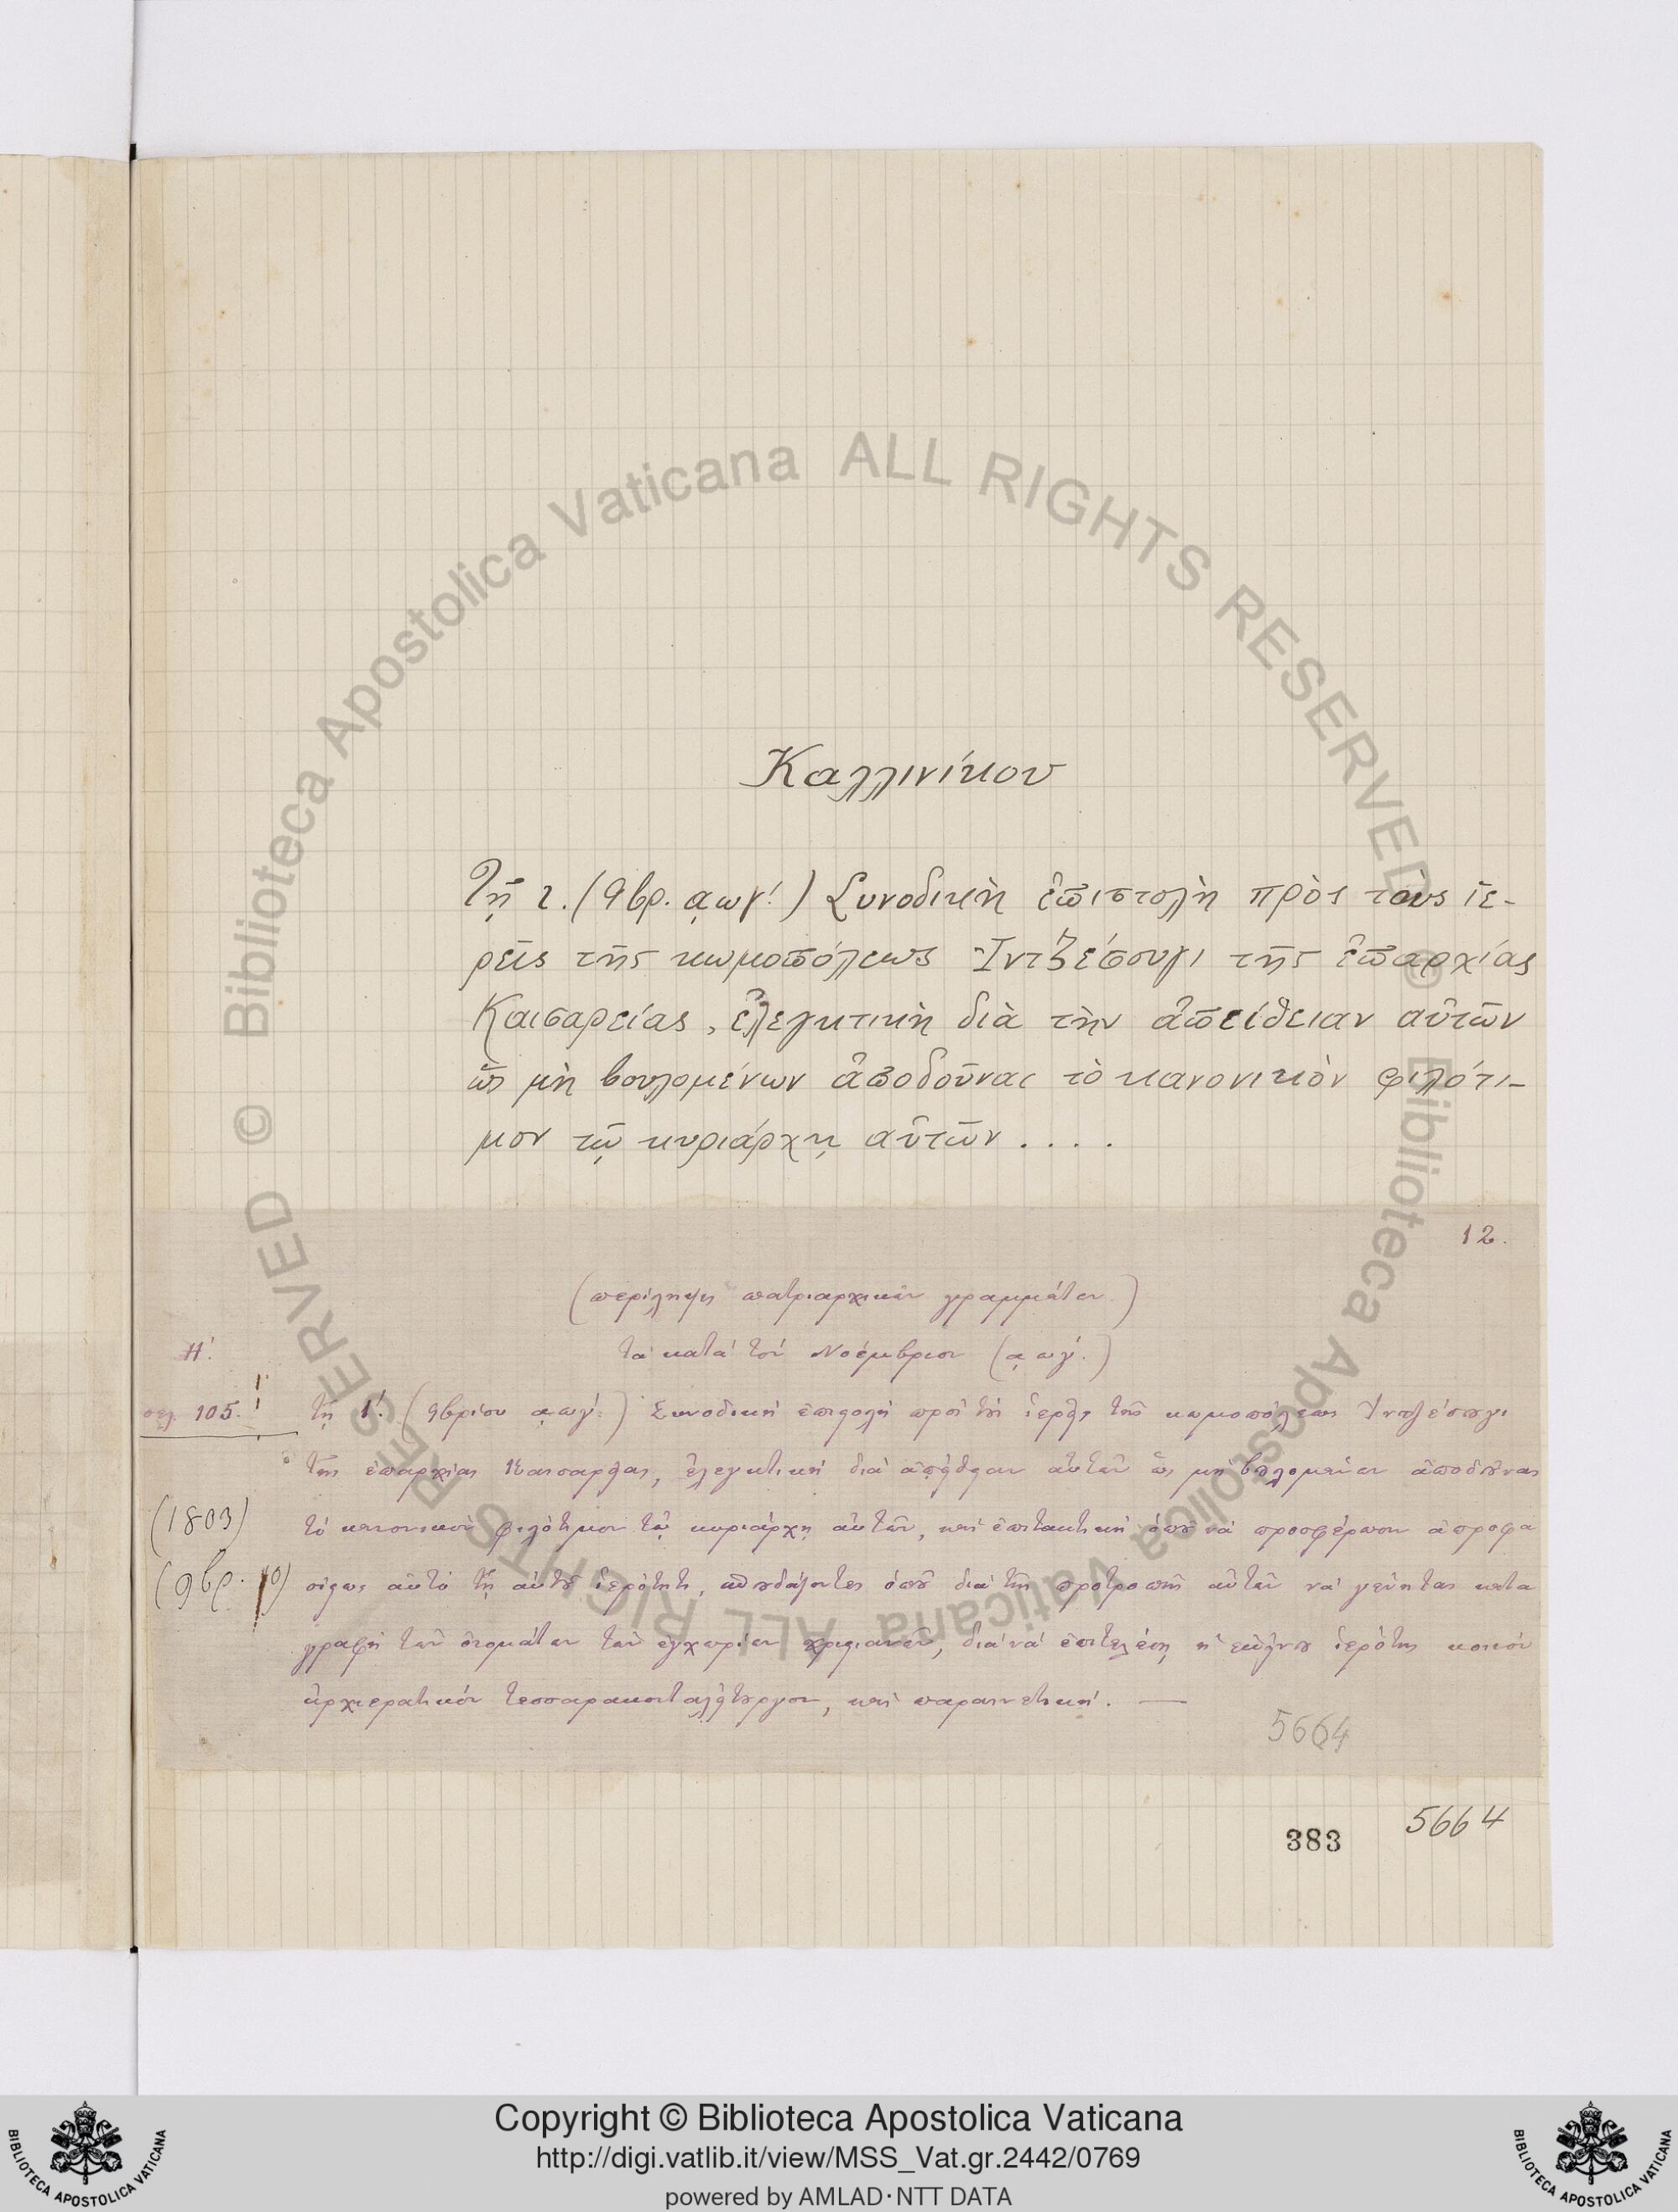 Καλλινίκου
Τῇ ι. (9βρ. ͵αωγʹ.) Συνοδικὴ ἐπιστολὴ πρὸς τοὺς ἱε-
ρεῖς τῆς κωμοπόλεως Ἰντζέσουγι τῆς ἐπαρχίας
Καισαρείας, ἐλεγκτικὴ διὰ τὴν ἀπείθειαν αὐτῶν
ὡς μὴ βουλομένων ἀποδοῦναι τὸ κανονικὸν φιλότι-
μον τῷ κυριάρχῃ αὐτῶν ....
12.
(περίληψις πατριαρχικῶν γραμμάτων)
Ηʹ. τὰ κατὰ τὸν Νοέμβριον (͵αωγʹ.)
σελ. 105. τῇ ιʹ. (9βρίου ͵αωγʹ.) Συνοδικὴ ἐπιστολὴ πρὸς τοὺς ἱερεῖς τῆς κωμοπόλεως Ἰντζέσουγι
τῆς ἐπαρχίας Καισαρείας, ἐλεγκτικὴ διὰ ἀπείθειαν αὐτῶν ὡς μὴ βουλομένων ἀποδοῦναι
(1803) τὸ κανονικὸν φιλότιμον τῷ κυριάρχῃ αὐτῶν, καὶ ἐπιτακτικὴ ὁποῦ νὰ προσφέρωσιν ἀπροφα
(9βρ. 10) σίστως αὐτὸ τῇ αὐτοῦ ἱερότητι, σπουδάζοντες ὁποῦ διὰ τῆς προτροπῆς αὐτῶν νὰ γενῆται κατα
γραφὴ τῶν ὀνομάτων τῶν ἐγχωρίων χριστιανῶν, διὰ νὰ ἐπιτελέσῃ ἡ ἐκείνου ἱερότης κοινὸν
ἀρχιερατικὸν τεσσαρακονταλείτουργον, καὶ παραινετική. —
5664
383 5664
Copyright © Biblioteca Apostolica Vaticana
http://digi.vatlib.it/view/MSS_Vat.gr.2442/0769
powered by AMLAD·NTT DATA
BIBLIOTECA APOSTOLICA VATICANA
BIBLIOTECA APOSTOLICA VATICANA
Biblioteca Apostolica Vaticana ALL RIGHTS RESERVED ©
Biblioteca Apostolica Vaticana ALL RIGHTS RESERVED ©